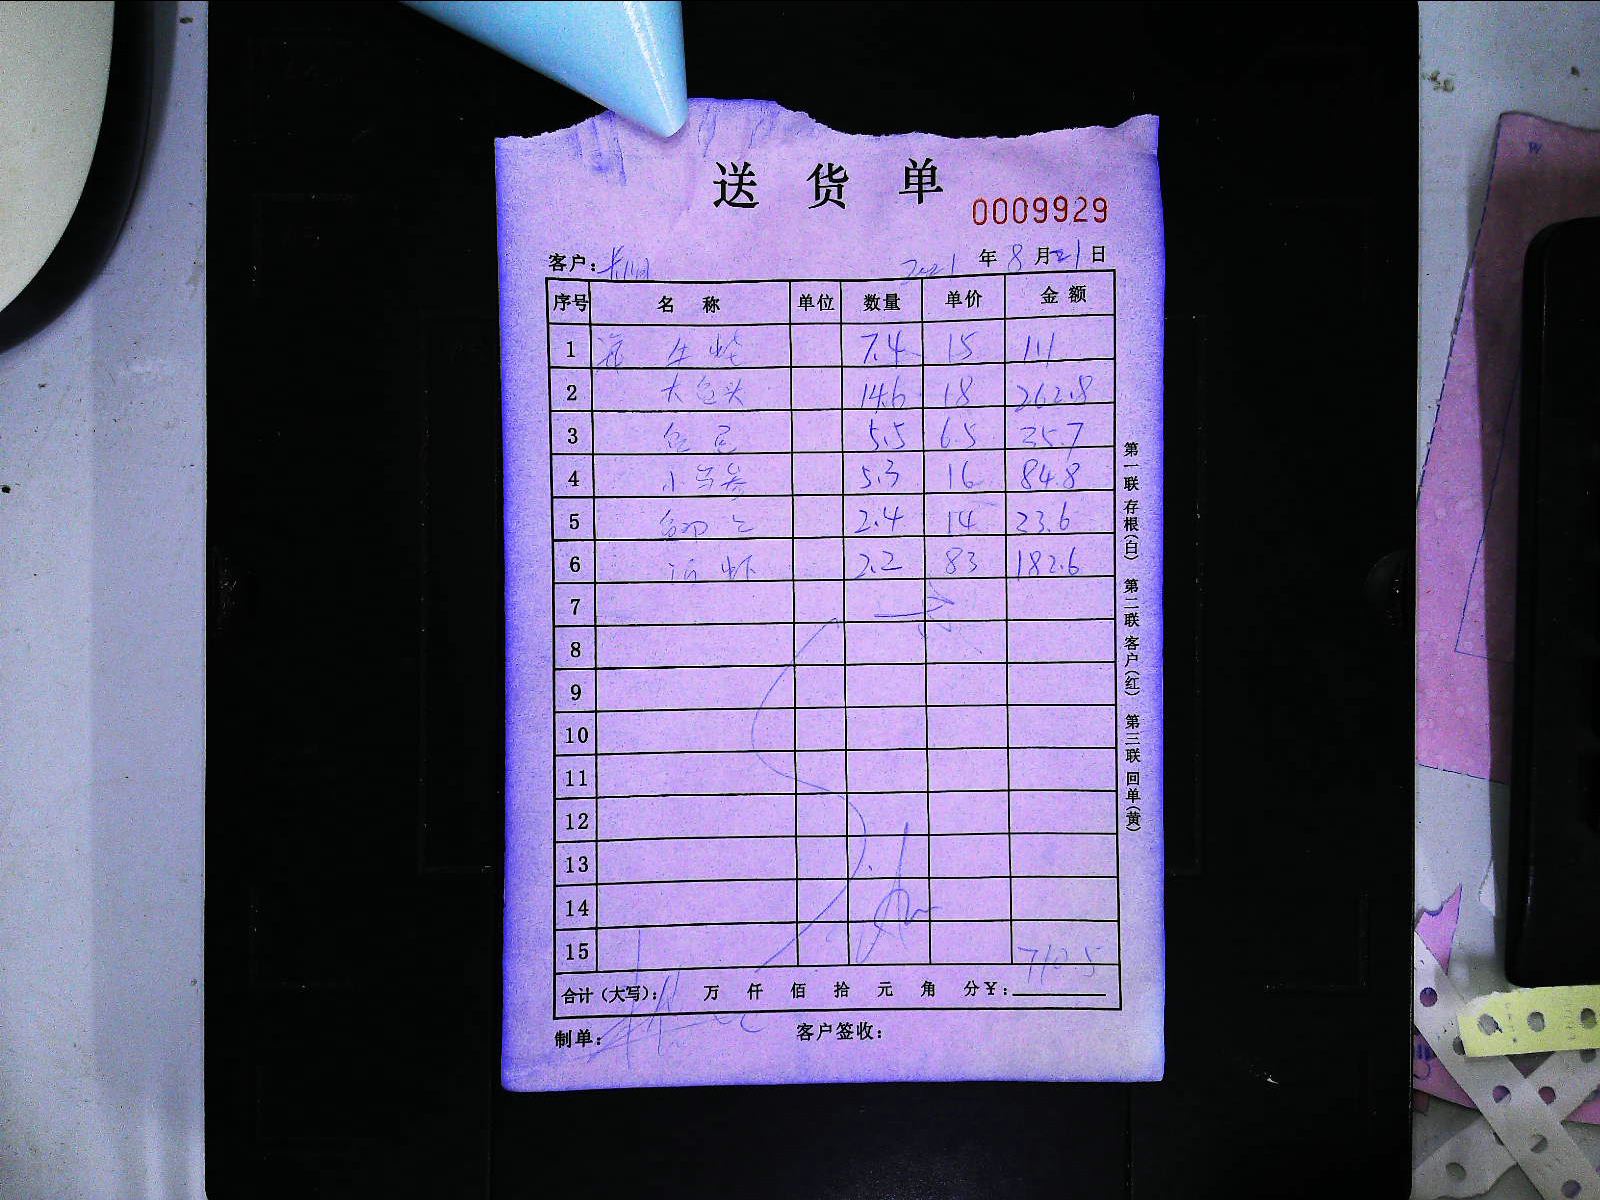 送货单
0009929
客户： 2021年8月21日
序号 名称 单位 数量 单价 金额
1 7.4 15 111
2 大鱼头 14.6 18 262.8
3 5.5 6.5 35.7
4 5.3 16 84.8
5 2.4 14 33.6
6 2.2 83 182.6
7
8
9
10
11
12
13
14
15 710.5
合计（大写）： 万 仟 佰 拾 元 角 分￥：
制单： 客户签收：
第一联存根（白） 第二联客户（红） 第三联回单（黄）